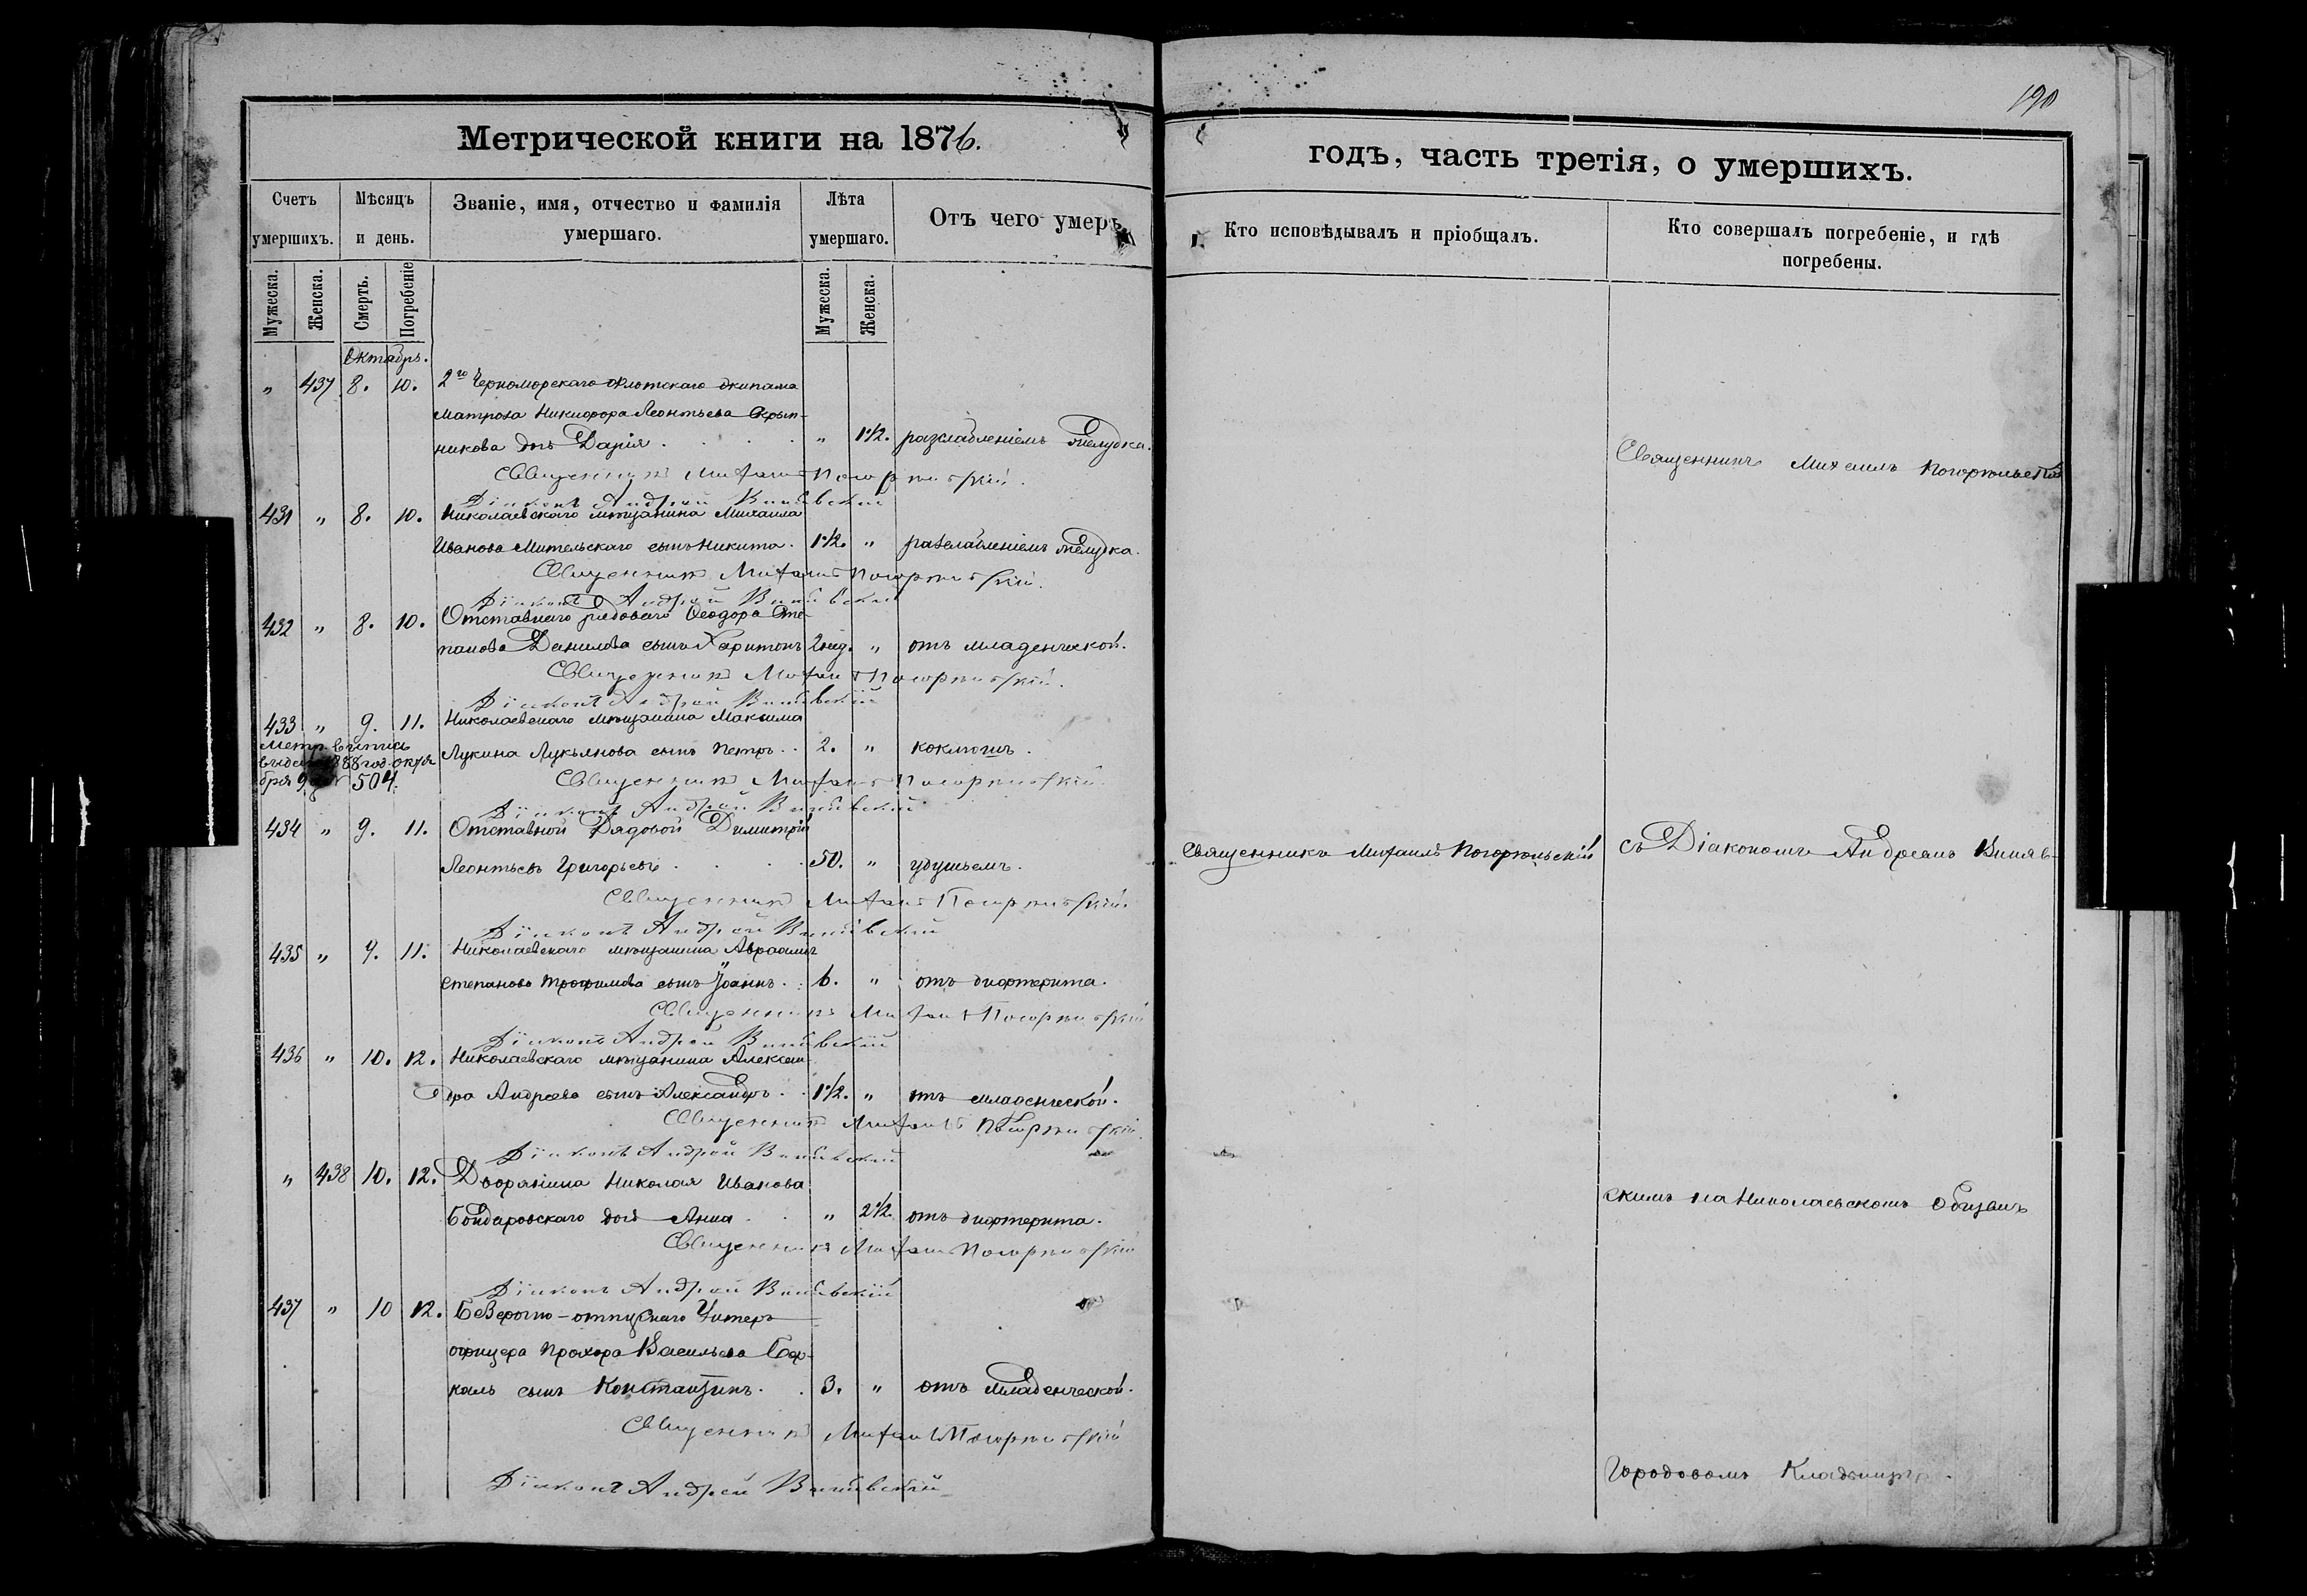 190
Метрической книги на 1876.
годъ, часть третія, о умершихъ.
Счетъ умершихъ.
Мѣсяцъ и день.
Званіе, имя, отчество и фамилія умершаго.
Лѣта умершаго.
Отъ чего умеръ.
Кто исповѣдывалъ и пріобщалъ.
Кто совершалъ погребеніе, и гдѣ погребены.
Мужеска. Женска. Смерть. Погребеніе Мужеска. Женска.
Октябрь.
" 437 8. 10. 2го Черноморскаго Флотскаго экипажа
матроза Никифора Леонтьева Скрып-
никова дчь Дарія . . . . " 1½. разслабленіемъ желудка.
Священникъ Михаилъ Погорѣльскій.
Діаконъ Андрей Винявскій
431 " 8. 10. Николаевскаго мѣщанина Михаила
Иванова Мительскаго сынъ Никита. 1½. " разслабленіемъ желудка.
Священникъ Михаилъ Погорѣльскій.
Діаконъ Андрей Винявскій
432 " 8. 10. Отставнаго рядоваго Ѳеодора Сте-
панова Данилова сынъ Харитонъ 2 нед. " отъ младенческой.
Священникъ Михаилъ Погорѣльскій.
Діаконъ Андрей Винявскій
433 " 9. 11. Николаевскаго мѣщанина Максима
Лукина Лукьянова сынъ Петръ . . 2. " коклюшъ.
Метр. выпись
выдана 1888 год. октя
бря 9 504.
Священникъ Михаилъ Погорѣльскій.
Діаконъ Андрей Винявскій
434 " 9. 11. Отставной Рядовой Димитрій
Леонтьевъ Григорьевъ . . . . 50. " удушьемъ.
Священникъ Михаилъ Погорѣльскій.
Діаконъ Андрей Винявскій
435 " 9. 11. Николаевскаго мѣщанина Авраама
Степанова Трофимова сынъ Іоаннъ . . 6. " отъ дифтерита.
Священникъ Михаилъ Погорѣльскій
Діаконъ Андрей Винявскій
436 " 10. 12. Николаевскаго мѣщанина Алексан-
дра Андреева сынъ Александръ . . 1½. " отъ младенческой.
Священникъ Михаилъ Погорѣльскій.
Діаконъ Андрей Винявскій
" 438 10. 12. Дворянина Николая Иванова
Бондаровскаго дочь Анна . . " 2½. отъ дифтерита.
Священникъ Михаилъ Погорѣльскій
Діаконъ Андрей Винявскій
437 " 10 12. Безсрочно-отпускнаго Унтеръ
офицера Прохора Васильева
сынъ Константинъ . . 3. " отъ младенческой.
Священникъ Михаилъ Погорѣльскій
Діаконъ Андрей Винявскій
Священникъ Михаилъ Погорѣльскій
Священникъ Михаилъ Погорѣльскій
съ Діакономъ Андреемъ Виняв-
скимъ на Николаевскомъ общемъ
Городовомъ Кладбищѣ.